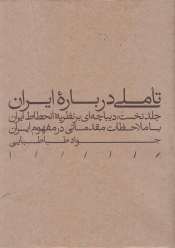 تأملی دربارهٔ ایران
جلد نخست: دیباچه‌ای بر نظریهٔ انحطاط ایران
با ملاحظات مقدماتی در مفهوم ایران
جواد طباطبایی